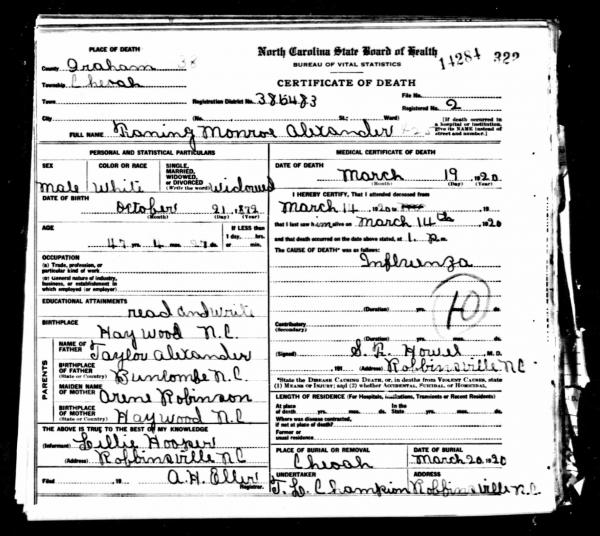 North Carolina State Board of Health
BUREAU OF VITAL STATISTICS
CERTIFICATE OF DEATH
14284 322
PLACE OF DEATH
County Graham 38
Township Cheoah
Town
Registration District No. 386483
File No.
Registered No. 2
City (No. St.; Ward)
[If death occurred in a hospital or institution, give its NAME instead of street and number.]
FULL NAME Monroe Alexander
PERSONAL AND STATISTICAL PARTICULARS
SEX
male
COLOR OR RACE
White
SINGLE, MARRIED, WIDOWED, OR DIVORCED (Write the word)
widowed
DATE OF BIRTH
October 21, 1872
(Month) (Day) (Year)
AGE
IF LESS than 1 day, hrs. or min.
47 yrs. 4 mos. 27 ds.
OCCUPATION
(a) Trade, profession, or particular kind of work
(b) General nature of industry, business, or establishment in which employed (or employer)
EDUCATIONAL ATTAINMENTS
read and write
BIRTHPLACE
Haywood N.C.
PARENTS
NAME OF FATHER
Taylor Alexander
BIRTHPLACE OF FATHER
(State or Country)
Buncombe N.C.
MAIDEN NAME OF MOTHER
Orene Robinson
BIRTHPLACE OF MOTHER
(State or Country)
Haywood N.C
THE ABOVE IS TRUE TO THE BEST OF MY KNOWLEDGE
(Informant) Lillie Hooper
(Address) Robbinsville NC
Filed , 19 A. H. Eller
Registrar.
MEDICAL CERTIFICATE OF DEATH
DATE OF DEATH
March 19, 1920
(Month) (Day) (Year)
I HEREBY CERTIFY, That I attended deceased from
March 14, 1920 to , 19
that I last saw him alive on March 14th, 1920
and that death occurred on the date above stated, at 1. P. m.
The CAUSE OF DEATH* was as follows:
Influenza
10
(Duration) yrs. mos. ds.
Contributory
(Secondary)
(Duration) yrs. mos. ds.
(Signed) Howel M. D.
191 (Address) Robbinsville NC
*State the DISEASE CAUSING DEATH, or, in deaths from VIOLENT CAUSES, state (1) MEANS OF INJURY; and (2) whether ACCIDENTAL, SUICIDAL, or HOMICIDAL.
LENGTH OF RESIDENCE (For Hospitals, Institutions, Transients or Recent Residents)
At place of death yrs. mos. ds. In the State yrs. mos. ds.
Where was disease contracted, if not at place of death?
Former or usual residence
PLACE OF BURIAL OR REMOVAL
Cheoah
DATE OF BURIAL
March 20, 1920
UNDERTAKER
T. L. Champion
ADDRESS
Robbinsville N.C.